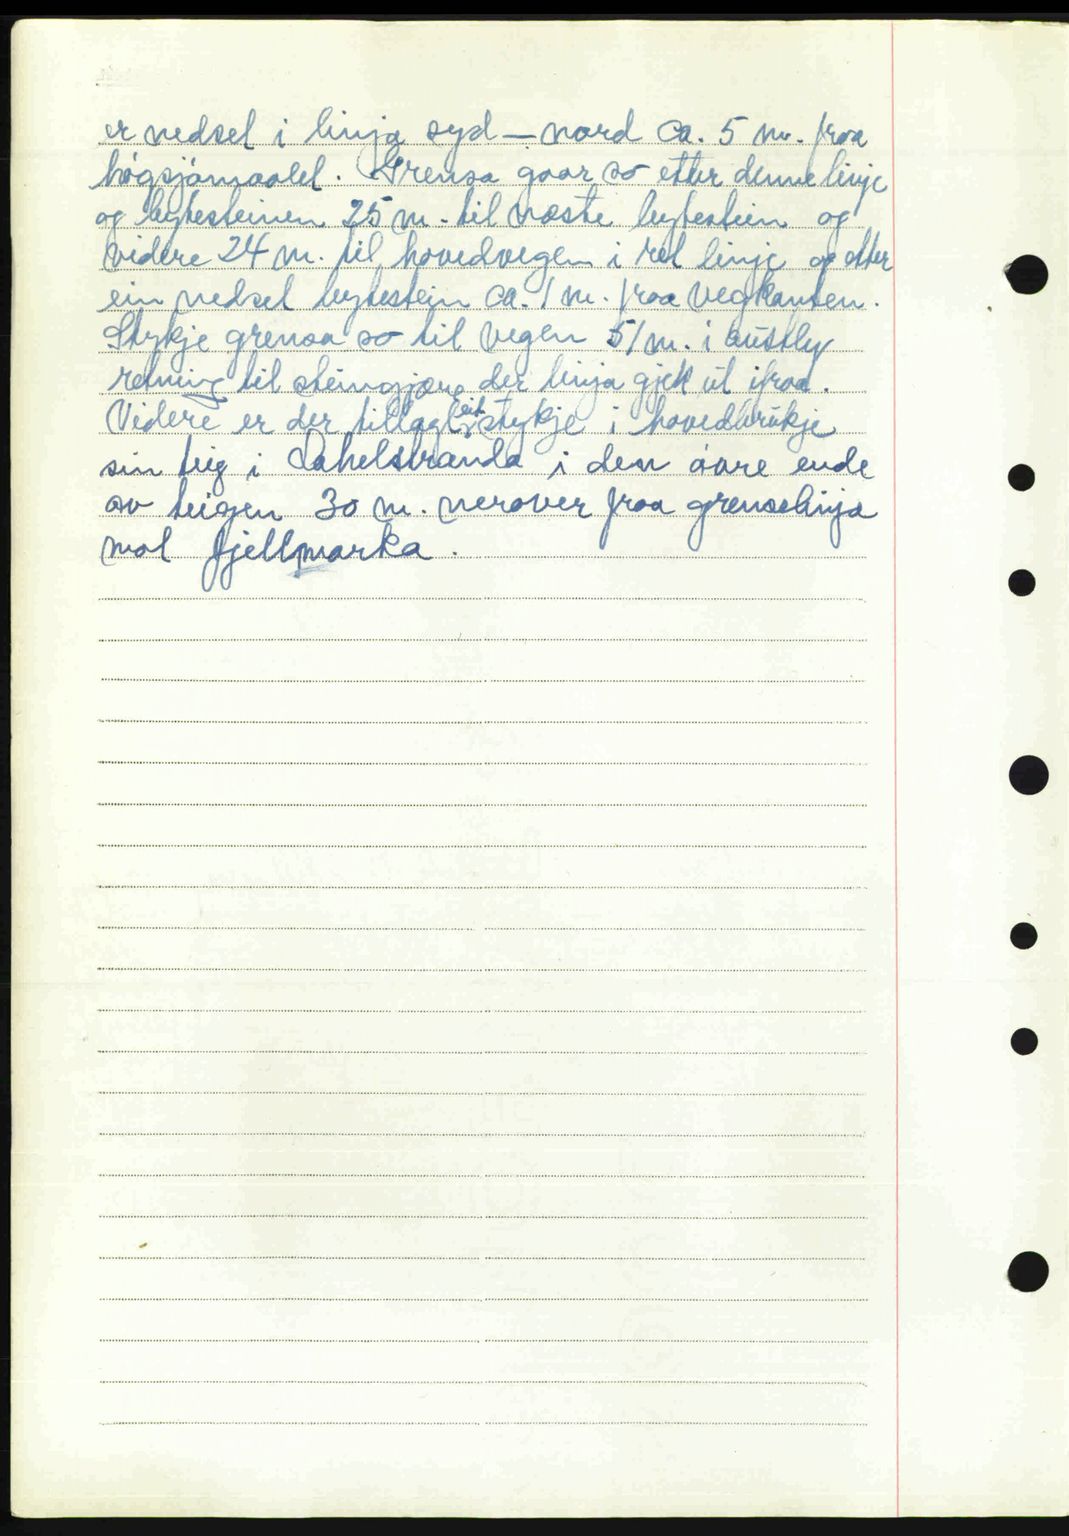 er nedsel i linja syd – nord ca. 5 m. fraa
høgsjømaalet. Grensa gaar so etter denne linje
og bytesteinen 25 m. til næste bytestein og
videre 24 m. til hovedvegen i ret linje og etter
ein nedset bytestein ca. 1 m. fraa vegkanten.
Stykje grensa so til vegen 51 m. i austleg
retning til steingjære der linja gjek ut ifraa.
Videre er der tillagt eit stykje i hovedbrukje
sin teig i i den øvre ende
av teigen 30 m. nerover fraa grenselinja
mot fjellmarka.